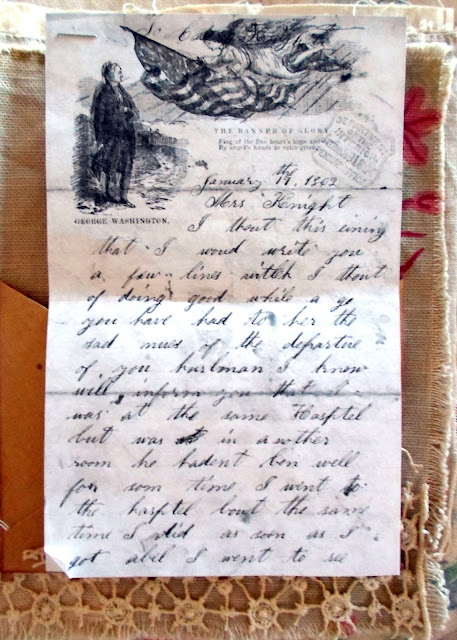 THE BANNER OF GLORY
Flag of the free heart's hope and
By angel's hands to valor given
GEORGE WASHINGTON.
January 19th, 1862
Mrs Knight
I thout this evning
that I woud write you
a few lines witch I thout
of doing good while a go
you have had to her the
sad nuws of the departure
of you husbman I know
will inform you that I
was at the same Hosptel
but was in another
room he hadent ben well
for som time I went to
the hosptel bout the same
time I did as soon as I
got abel I went to see